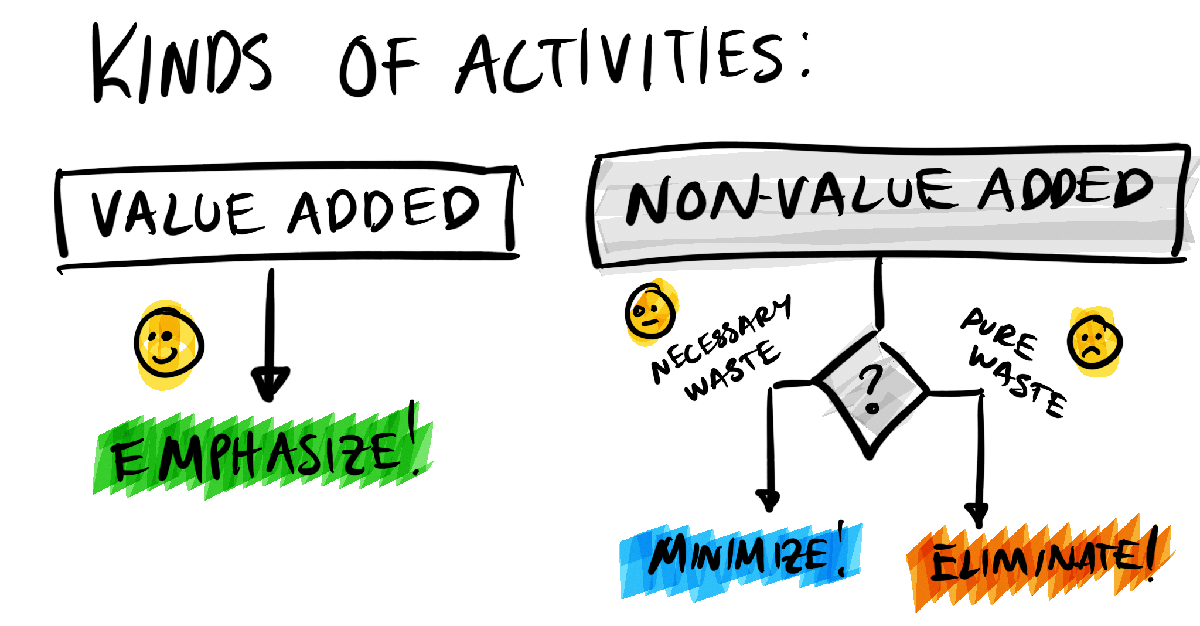 KINDS OF ACTIVITIES:
VALUE ADDED
EMPHASIZE!
NON-VALUE ADDED
NECESSARY
WASTE
PURE
WASTE
?
MINIMIZE!
ELIMINATE!